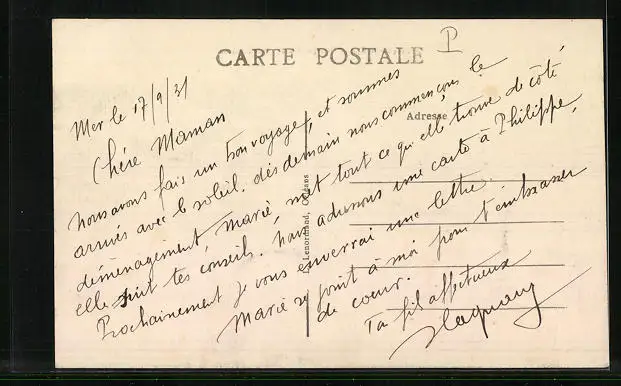 P
CARTE POSTALE
Adresse
Lenormand, Orléans
Mer le 17/9/31
Chère Maman
Nous avons fais un bon voyage, et sommes
arrivés avec le soleil. dés demain nous commençons le
déménagement, Marie, met tout ce qu'elle trouve de côté
elle suit tes conseils. nous adressons une carte à Philippe,
Prochainement je vous enverrai une lettre.
Marie se joint à moi pour t'embrasser
de coeur.
Ta fils affectueux